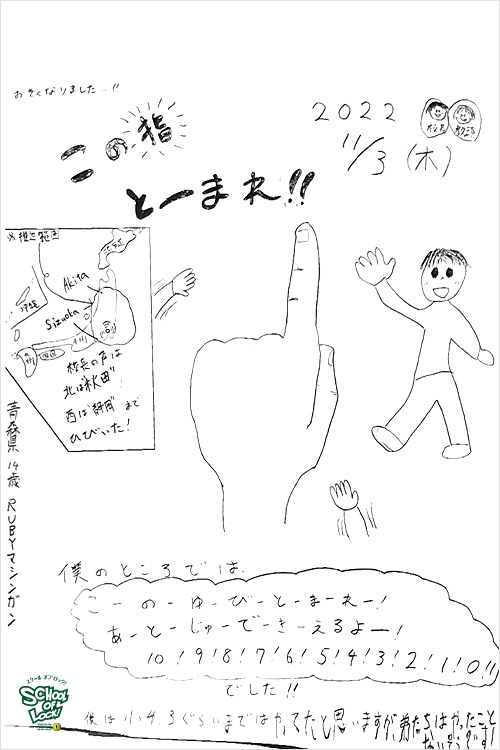 おそくなりましたー!!
2022
11/3(木)
校長
教頭
この指
とーまれ!!
北海道
Akita
Sizuoka
沖縄
九州
四国
校長の声は
北は"秋田"!
西は"静岡"まで
ひびいた!
青森県 14歳 RUBYマシンガン
僕のところでは、
こーのーゆーびーとーまーれー!
あーとーじゅーでーきーえるよー!
10!9!8!7!6!5!4!3!2!1!0!!
でした!!
僕は小4.3ぐらいまではやってたと思いますが、弟たちはやったこと
ないそうです!
スクール オブ ロック!
SCHOOL
OF
LOCK!